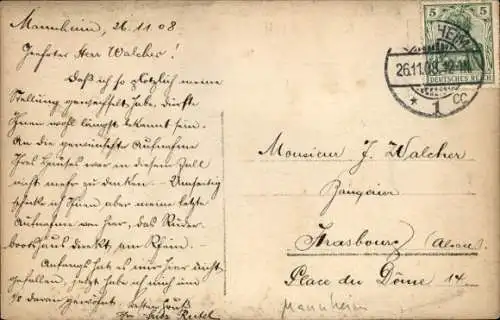 Mannheim, 26.11.08
Geehrter Herr Walcher!
Daß ich so plötzlich meine
Stellung gewechselt habe, dürfte
Ihnen wohl längst bekannt sein.
An die gemeinschaftl. Aufnahme
Ihres Hauses war in diesem Fall
nicht mehr zu denken. – Umseitig
schicke ich Ihnen aber meine letzte
Aufnahme von hier, das Ruder-
bootshaus direkt am Rhein. –
Anfangs hat es mir hier nicht
gefallen, jetzt habe ich mich
daran gewöhnt. Besten Gruß
Ihr Fritz
5 5
DEUTSCHES REICH
26.11.08 12-1N
* 1 CC
Monsieur J. Walcher
Banquier
Strasbourg (Alsace)
Place du Dôme 14
Mannheim